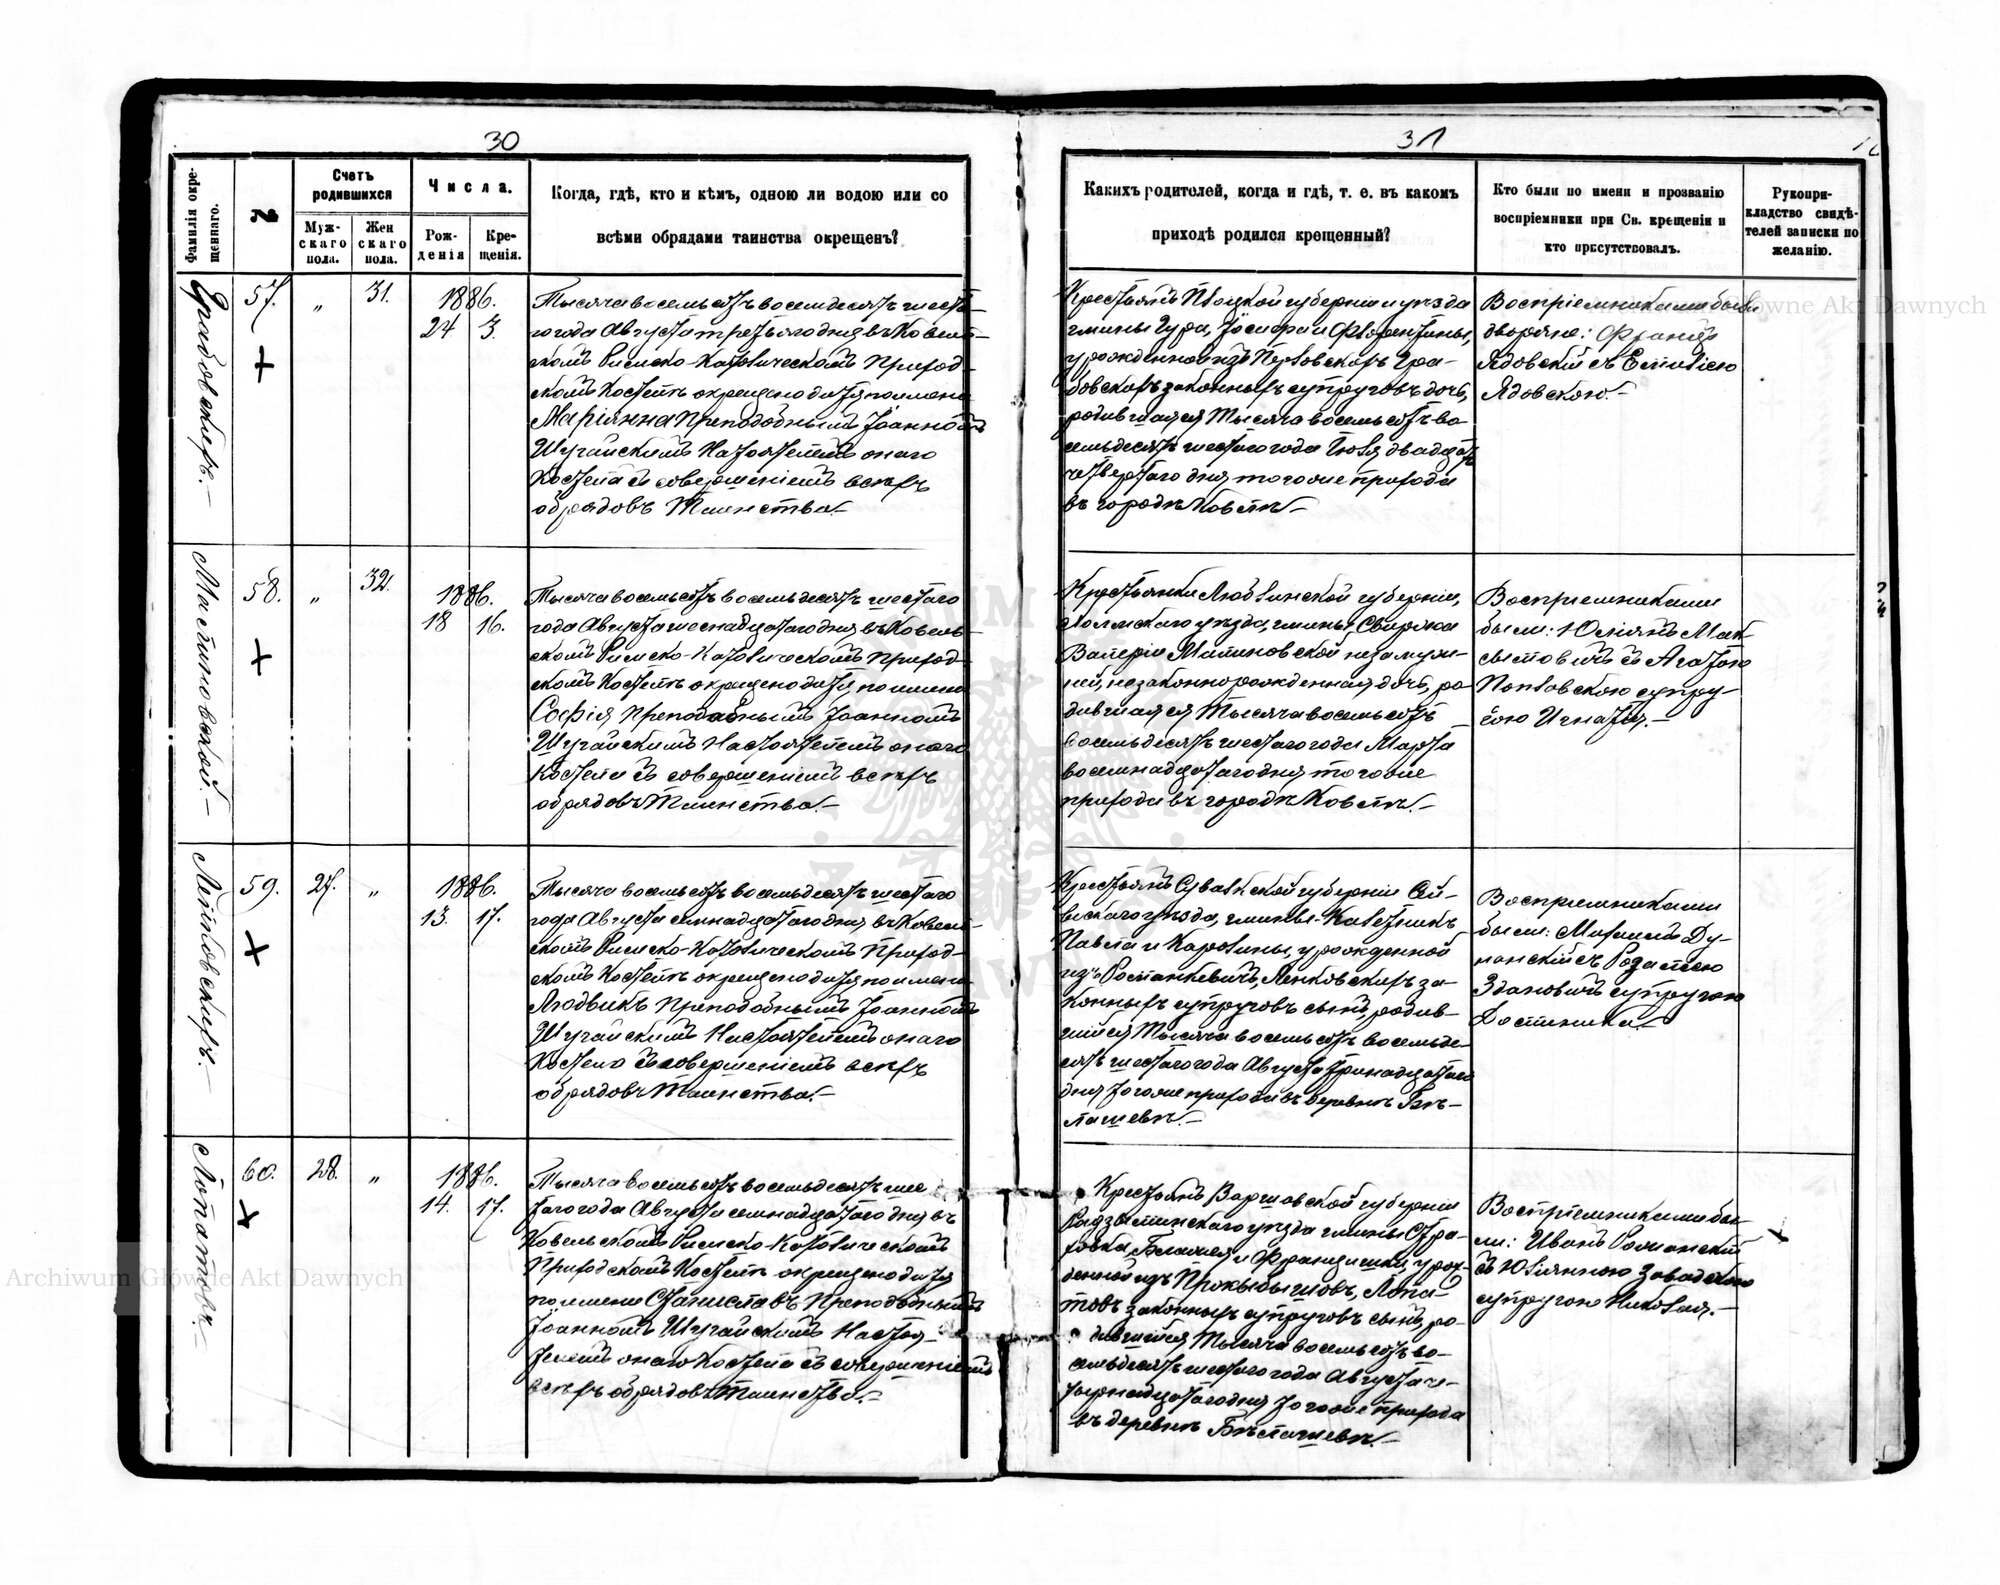 30
Фамилія окре-
щеннаго.
№
Счетъ
родившихся
Муж-
скаго
пола.
Жен
скаго
пола.
Числа.
Рож-
денія
Кре-
щенія.
Когда, гдѣ, кто и кѣмъ, одною ли водою или со
всѣми обрядами таинства окрещенъ?
Грабовскихъ.—
57.
„
31.
1886.
24 3.
Тысяча восемьсотъ восемдесятъ шеста-
го года Августа третьяго дня въ Ковель-
скомъ Римско-Католическомъ Приход-
скомъ Костелѣ окрещено дитя по имени
Маріянна Преподобнымъ Іоанномъ
Шугайскимъ Настоятелемъ онаго
Костела съ совершеніемъ всѣхъ
обрядовъ Таинства.—
Малиновской.—
58.
„
32.
1886.
18 16.
Тысяча восемьсотъ восемьдесятъ шестаго
года Августа шеснадцатаго дня въ Ковель-
скомъ Римско-Католическомъ Приход-
скомъ Костелѣ окрещено дитя по имени
Софія Преподобнымъ Іоанномъ
Шугайскимъ Настоятелемъ онаго
Костела съ совершеніемъ всѣхъ
обрядовъ Таинства.—
59.
27.
„
1886.
13. 17.
Тысяча восемьсотъ восемьдесятъ шестаго
года Августа семнадцатаго дня въ Ковель-
скомъ Римско-Католическомъ Приход-
скомъ Костелѣ окрещено дитя по имени
Людвикъ Преподобнымъ Іоанномъ
Шугайскимъ Настоятелемъ онаго
Костела съ совершеніемъ всѣхъ
обрядовъ Таинства.—
Лопатовъ.—
60.
28.
„
1886.
14. 17.
Тысяча восемьсотъ восемьдесятъ шес
таго года Августа семнадцатаго дня въ
Ковельскомъ Римско-Католическомъ
Приходскомъ Костелѣ окрещено дитя
по имени Станиславъ Преподобнымъ
Іоанномъ Шугайскимъ Настоя-
телемъ онаго Костела съ совершеніемъ
всѣхъ обрядовъ Таинства.—
31
Какихъ родителей, когда и гдѣ, т. е. въ какомъ
приходѣ родился крещенный?
Кто были по имени и прозванію
воспріемники при Св. крещеніи и
кто присутствовалъ.
Рукопри-
кладство свидѣ-
телей записки по
желанію.
Крестьянъ Плоцкой губерніи и уѣзда
гмины Гура, Іосифа и Флорентины,
урожденной изъ Грa-
бовскихъ законныхъ супруговъ дочь,
родившаяся Тысяча восемьсотъ во
семьдесятъ шестаго года Іюля двадцать
четвертаго дня тогоже прихода
въ городѣ Ковелѣ.—
Воспріемниками были
дворяне: Францъ
Ядовскій съ Емиліею
Ядовскою.—
Крестьянки Люблинской губерніи,
Холмскаго уѣзда, гмины,
Валеріи Малиновской незамуж-
ней, незаконнорожденная дочь, ро-
дившаяся Тысяча восемьсотъ
восемьдесятъ шестаго года Марта
восемнадцатаго дня тогоже
прихода въ городѣ Ковелѣ.—
Воспріемниками
были: Юліянъ Мак-
сымовичъ съ Агатою
Попловскою супру-
гою Игнатія.—
Крестьянъ Сувалкской губерніи Сей-
нскаго уѣзда, гмины
Павла и Каролины, урожденной
изъ Романкевичъ, за-
конныхъ супруговъ сынъ, родив-
шійся Тысяча восемьсотъ восемьде-
сятъ шестаго года Августа тринадцатаго
дня тогоже прихода въ деревнѣ Бѣ-
лашевѣ.—
Воспріемниками
были: Михаилъ Ду-
манскій съ Розаліею
Здановичъ супругою
Доминика.—
Крестьянъ Варшавской губерніи
Радзыминскаго уѣзда гмины Стра-
ховка, Блажея и Францишки, урож-
денной изъ Лопа-
товъ законныхъ супруговъ сынъ, ро-
дившійся Тысяча восемьсотъ во-
семьдесятъ шестаго года Августа че-
тырнадцатаго дня тогоже прихода
въ деревнѣ Бѣлашевѣ.—
Воспріемниками бы-
ли: Иванъ Романскій
съ Юліянною Завадскою
супругою Николая.—
Archiwum Główne Akt Dawnych
Główne Akt Dawnych